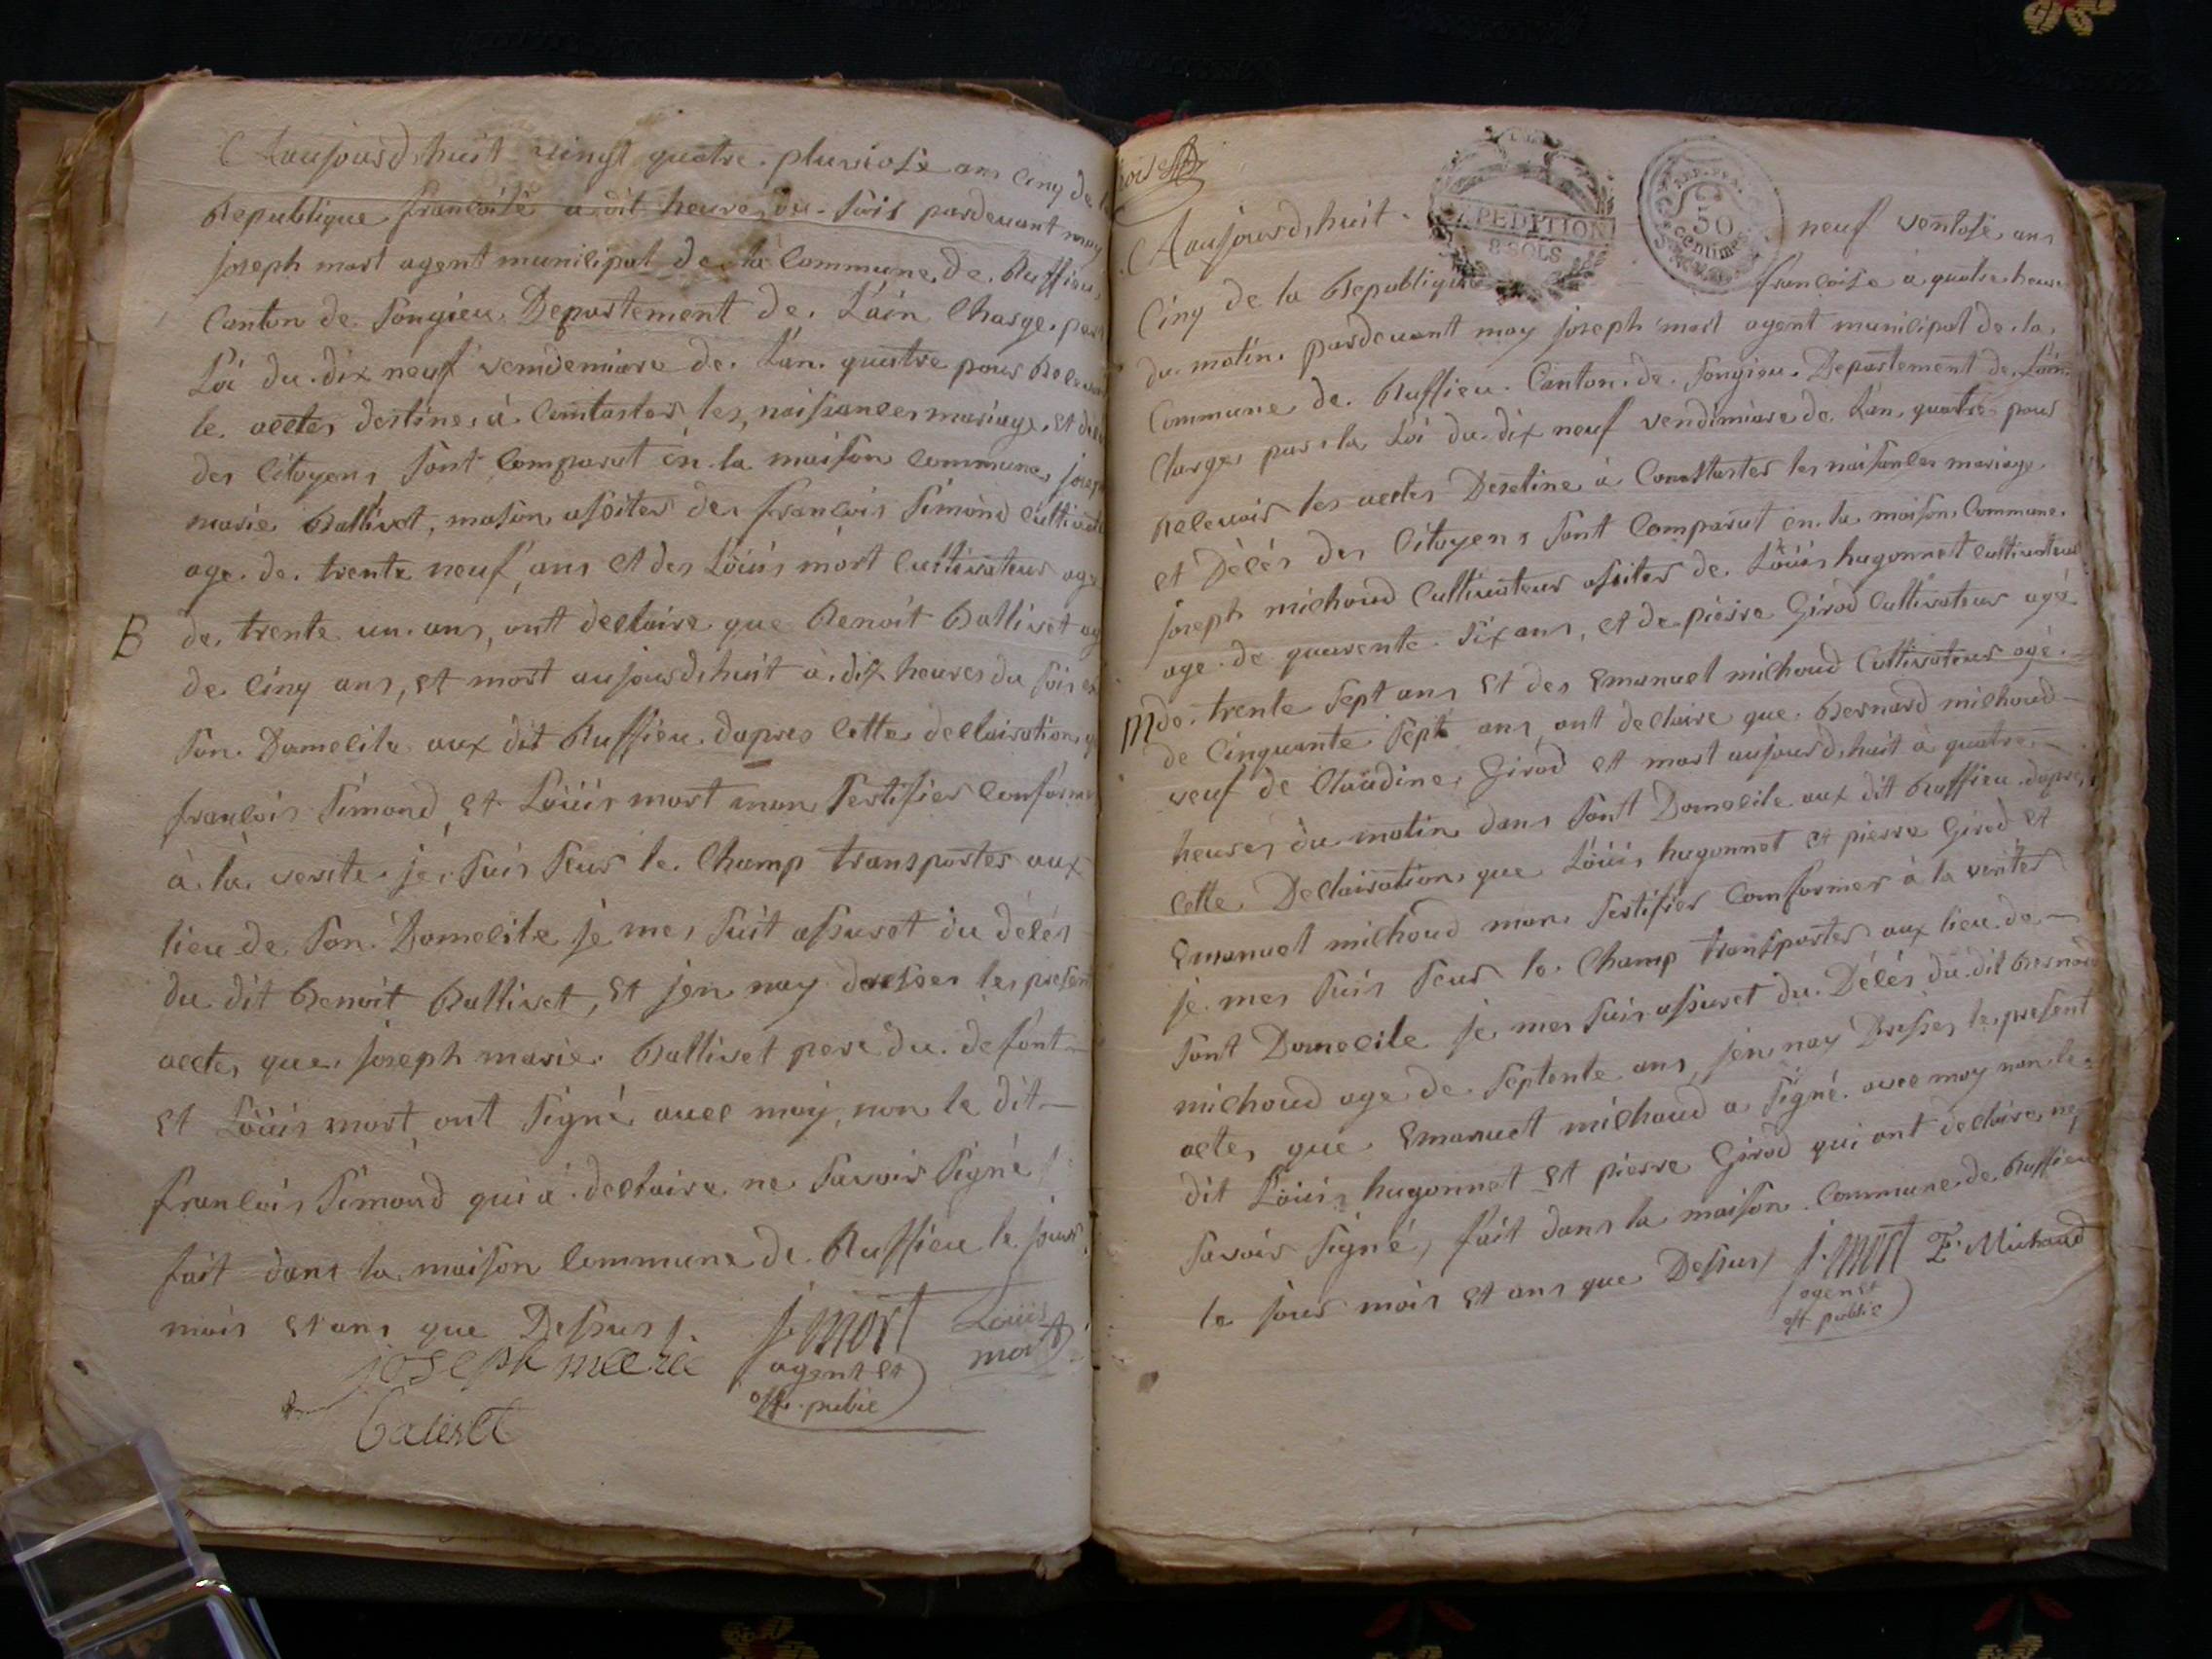 Aaujourd,huit vingt quatre pluviose ans cinq de la
Republique francoise a dit heure, du soir pardevant moy
joseph mort agent municipal de la Commune, de, Ruffieu,
Canton de Songieu Departement de. L'ain Charge, par
Loi du dix neuf vemdemiare de. L'an. quattre pour Relevoir
le actes destine, à Constater, les, naissances mariage, et déces
des Citoyens sont Comparut én la maison commune, joseph
marie Ballivet, mason, asoites de, francois Simònd cultivat
age. de. trente neuf, ans et des Loüis mort Cultivateur age
B de, trente un. ans, ont declaire que Benoit Ballivet ag
de cinq ans, et mort aujourdhuit à dix heures du soir en
son. Domecile aux dit Ruffieu. dapres cette declairation, q
francois Simond, et Loüis mort mon Sertifier conforme
à la, verite. je, suis seur le Champ transporter aux
lieu de son. Domecile je me, suit assuret du décés
du dit Benoit Ballivet, et jen nay dresser les present
actes que, joseph marie. Ballivet pere du. defont
et Loüis mort, ont signé avec moy, non le dit
francois Simond qui à declaire ne savoir signé /.
fait dans la, maison commune de. Ruffieu le jour,
mois et ans que Dessus /.
j. mort Loüis
joseph marie agent et mort
off. public
Balivet
Aaujourd,huit.
EXPEDITION
8 SOLS
REP. FRA.
50
centimes
neuf ventose, ans
Cinq de la Republique francoise a quatre heure
du matin. pardevant moy joseph mort agent municipal de la,
Commune de. Ruffieu. Canton. de. Songieu. Departement de, L'ain
Charge, par, la Loi du dix neuf vendimiare de. L'an, quatre pour
Relevoir les actes Destine à Constater les naissances mariage.
et Décés des Citoyens sont Comparut en la maison, Commune.
joseph michoud Cultivateur asoites de Loüis hugonnet cultivateur
age. de quarente. six ans, et de pierre Girod Cultivateur agé
M de. trente sept ans et des Emanuel michoud Cultivateur agé.
de Cinquante sept ans, ont declaire que. Bernard michoud
veuf de Claudine, Girod et mort aujourd,huit à quatre,
heures du matin, dans sont Domecile aux dit Ruffieu. dapres,
cette Declairation, que Loüis hugonnet et pierre Girod et
Emanuel michoud mon. Sertifier Comformer à la verites
je mes suis seur le. Champ transporter aux lieu de
sont Domecile je me, suis assuret du Décés du dit Bernard
michoud age de. septente ans, jen nay Dresser le, present
acte, que. Emanuel michoud a signé. avec moy non, le.
dit Loüis hugonnet et pierre Girod qui ont declaire, ne,
savoir signé, fait dans la maison Commune de. Ruffieu
le jour mois et ans que Dessus /. j. mort E. Michoud
agent et
off public